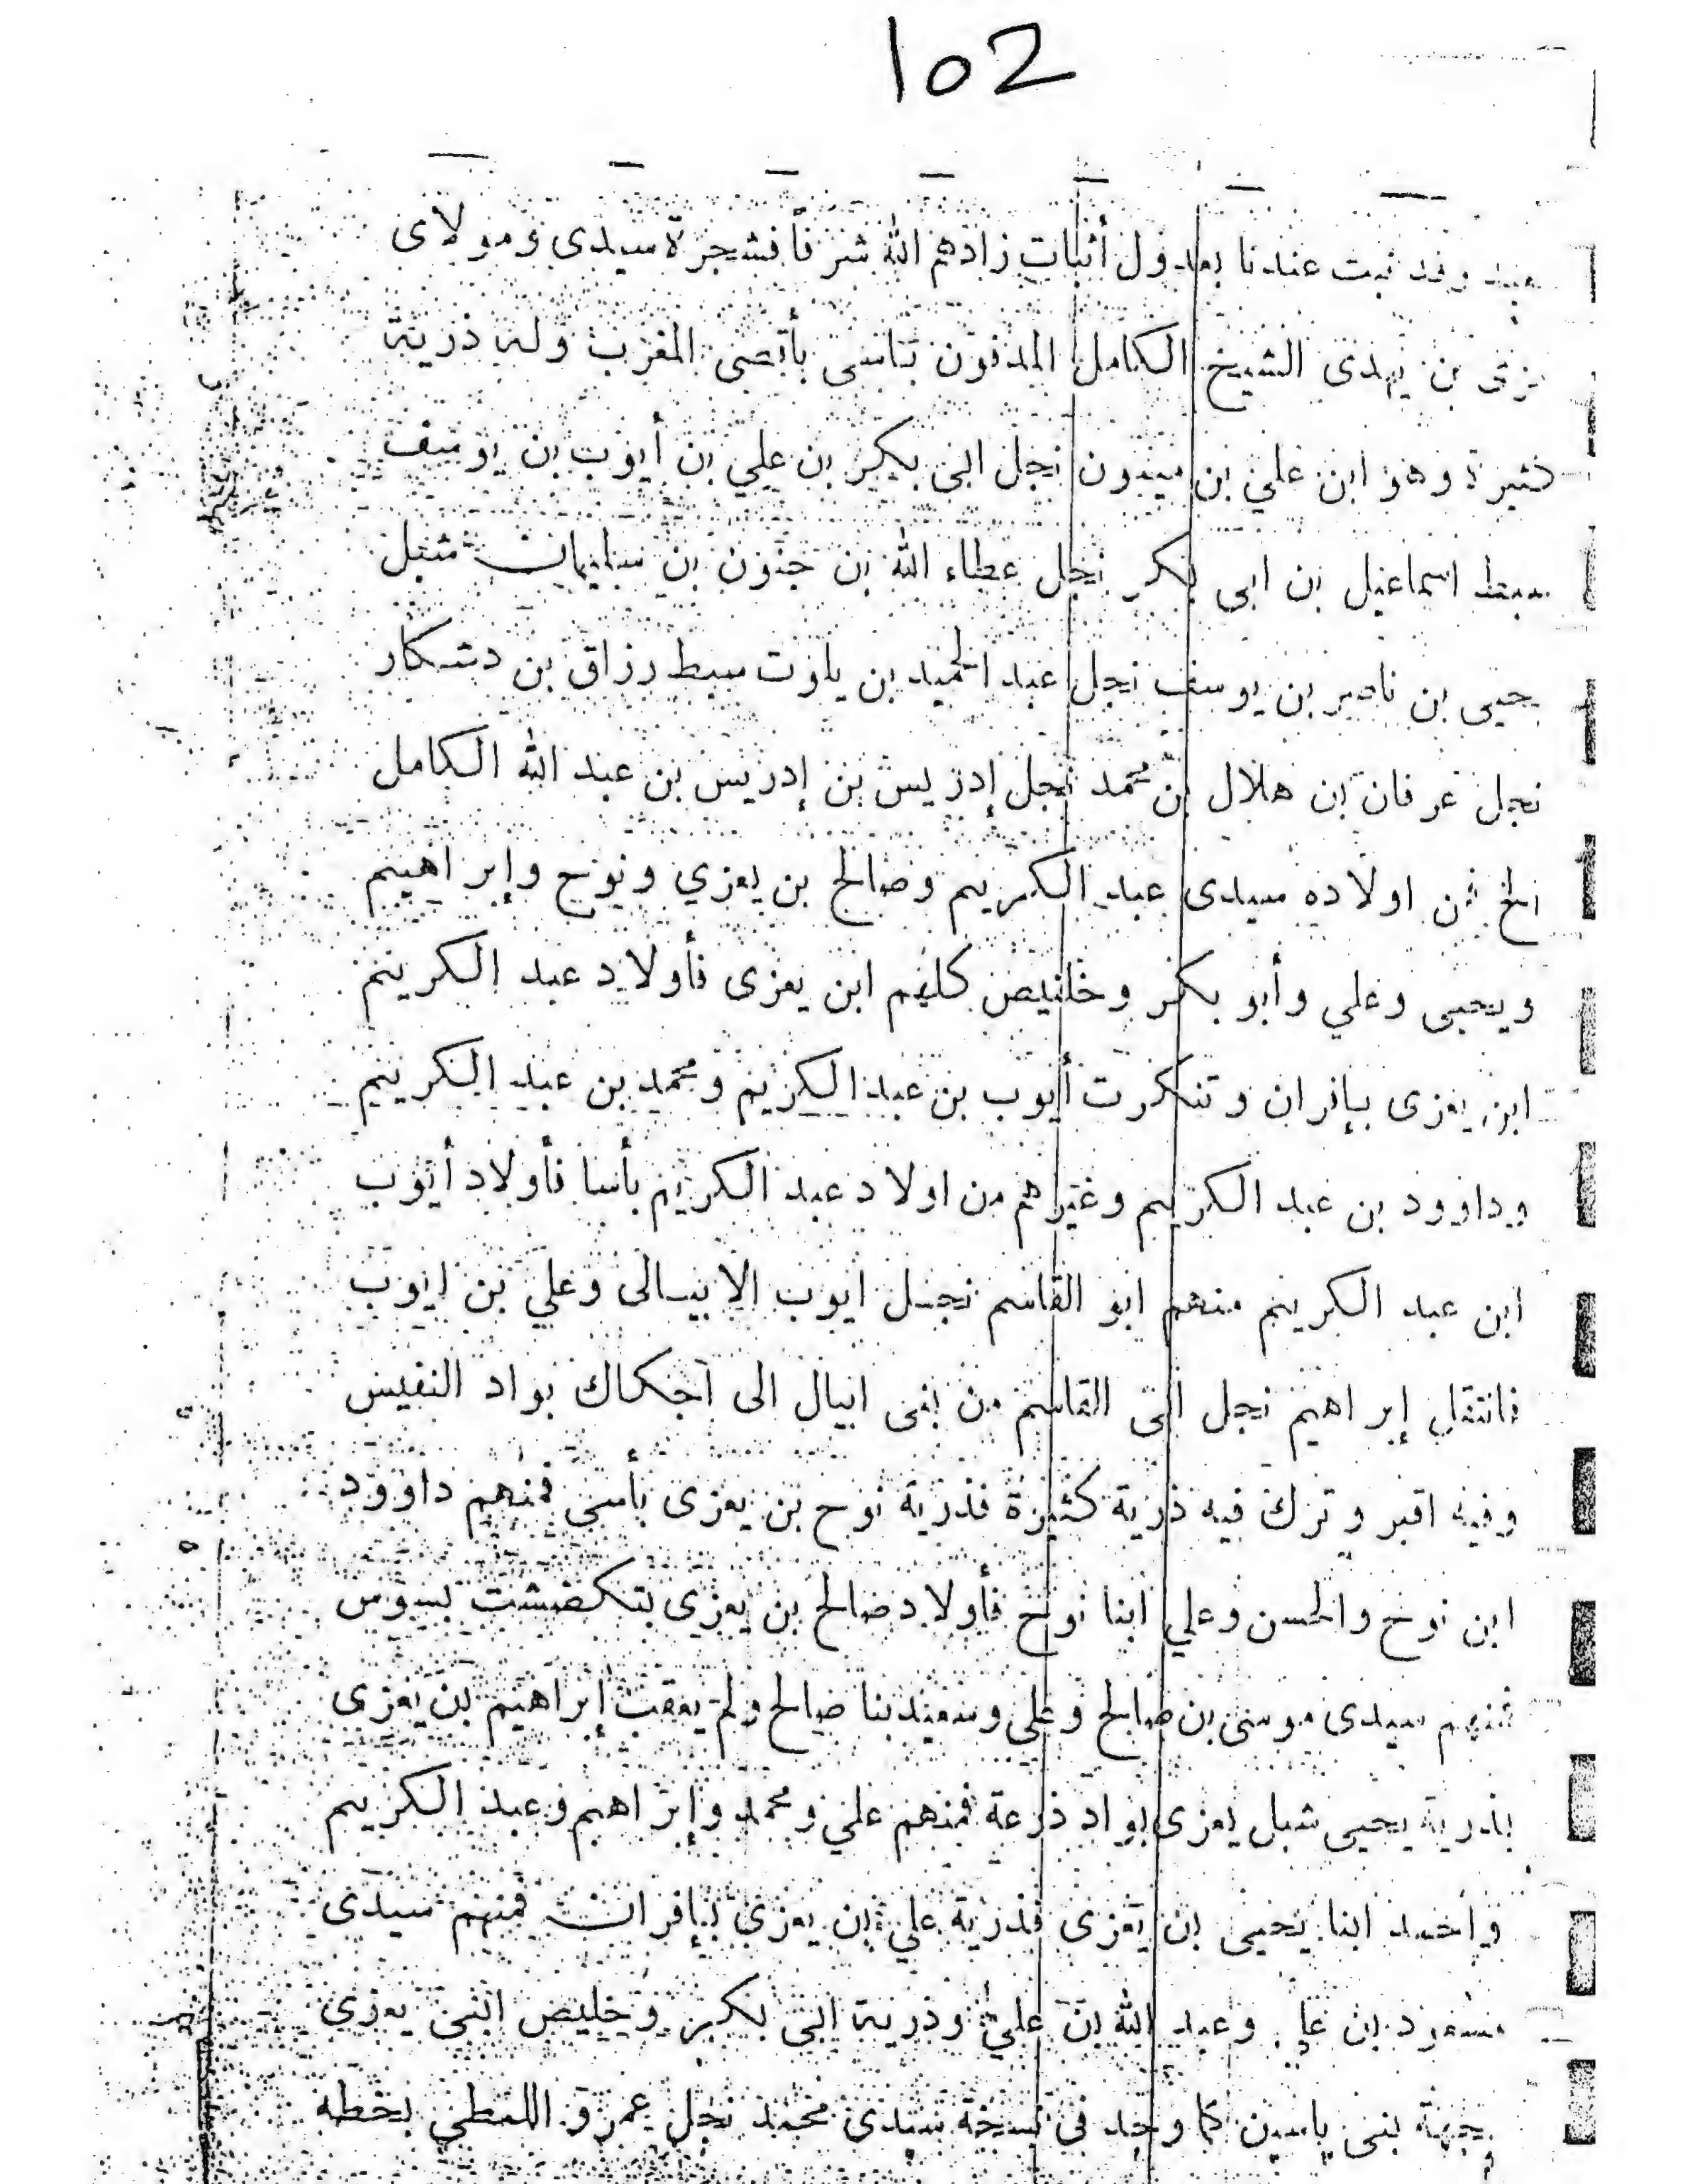 102
وقد ثبت عندنا بعدول أثبات زادهم الله شرفا فشجرة سيدى ومولاى
بن يهدى الشيخ الكامل المدفون بأقصى المغرب وله ذرية
كثيرة وهو ابن علي بن ميمون نجل ابى بكر بن علي بن أيوب بن يوسف
سبط اسماعيل بن ابى بكر نجل عطاء الله بن حنون بن سليمان شبل
يحيى بن ناصر بن يوسف نجل عبد الحميد بن سبط رزاق بن دشكار
نجل عرفان بن هلال بن محمد نجل إدريس بن إدريس بن عبد الله الكامل
الخ فمن اولاده سيدى عبد الكريم وصالح بن يعزي ونوح وإبراهيم
ويحيى وعلي وأبو بكر وخليص كلهم ابن يعزى فأولاد عبد الكريم
ابن يعزى بإفران وتنكرت أيوب بن عبد الكريم ومحمد بن عبد الكريم
وداوود بن عبد الكريم وغيرهم من اولاد عبد الكريم بأسا فأولاد أيوب
ابن عبد الكريم منهم ابو القاسم نجل ايوب الايسالى وعلي بن ايوب
فانتقل إبراهيم نجل ابى القاسم من بنى ايبال الى اجكاك بواد النفيس
وفيه اقبر وترك فيه ذرية كثيرة فذرية نوح بن يعزى بأسى فمنهم داوود
ابن نوح والحسن وعلي ابنا نوح فأولاد صالح بن يعزى بسوس
فمنهم سيدى موسى بن صالح وعلى وسعيد بنا صالح ولم يعقب إبراهيم بن يعزى
فذرية يحيى شبل يعزى بواد ذرعة فمنهم علي ومحمد وإبراهيم وعبد الكريم
وأحمد ابنا يحيى بن يعزى فذرية علي بن يعزى بإفران فمنهم سيدى
مسعود بن علي وعبد الله بن علي وذرية ابى بكر وخليص ابنى يعزى
بجهة بنى ياسين كما وجد فى نسخة سيدى محمد نجل عمرو اللمطي بخطه